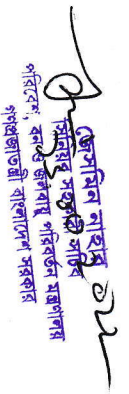 জেসমিন নাহার
সিনিয়র সহকারী সচিব
পরিবেশ, বন ও জলবায়ু পরিবর্তন মন্ত্রণালয়
গণপ্রজাতন্ত্রী বাংলাদেশ সরকার